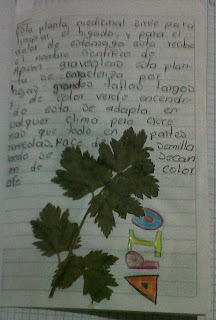 Esta planta medicinal sirve para
limpiar el higado, y para el
dolor de estomago esta recibe
el nombre cientifico de
Apium graveolens esta plan-
ta se caracteriza por
hojas grandes tallos largos
de color verde encendi-
do esta se adapta en
qualquer clima pero crece
mas que todo en partes
nace de semilla
de secan
de color
cafe
APIO